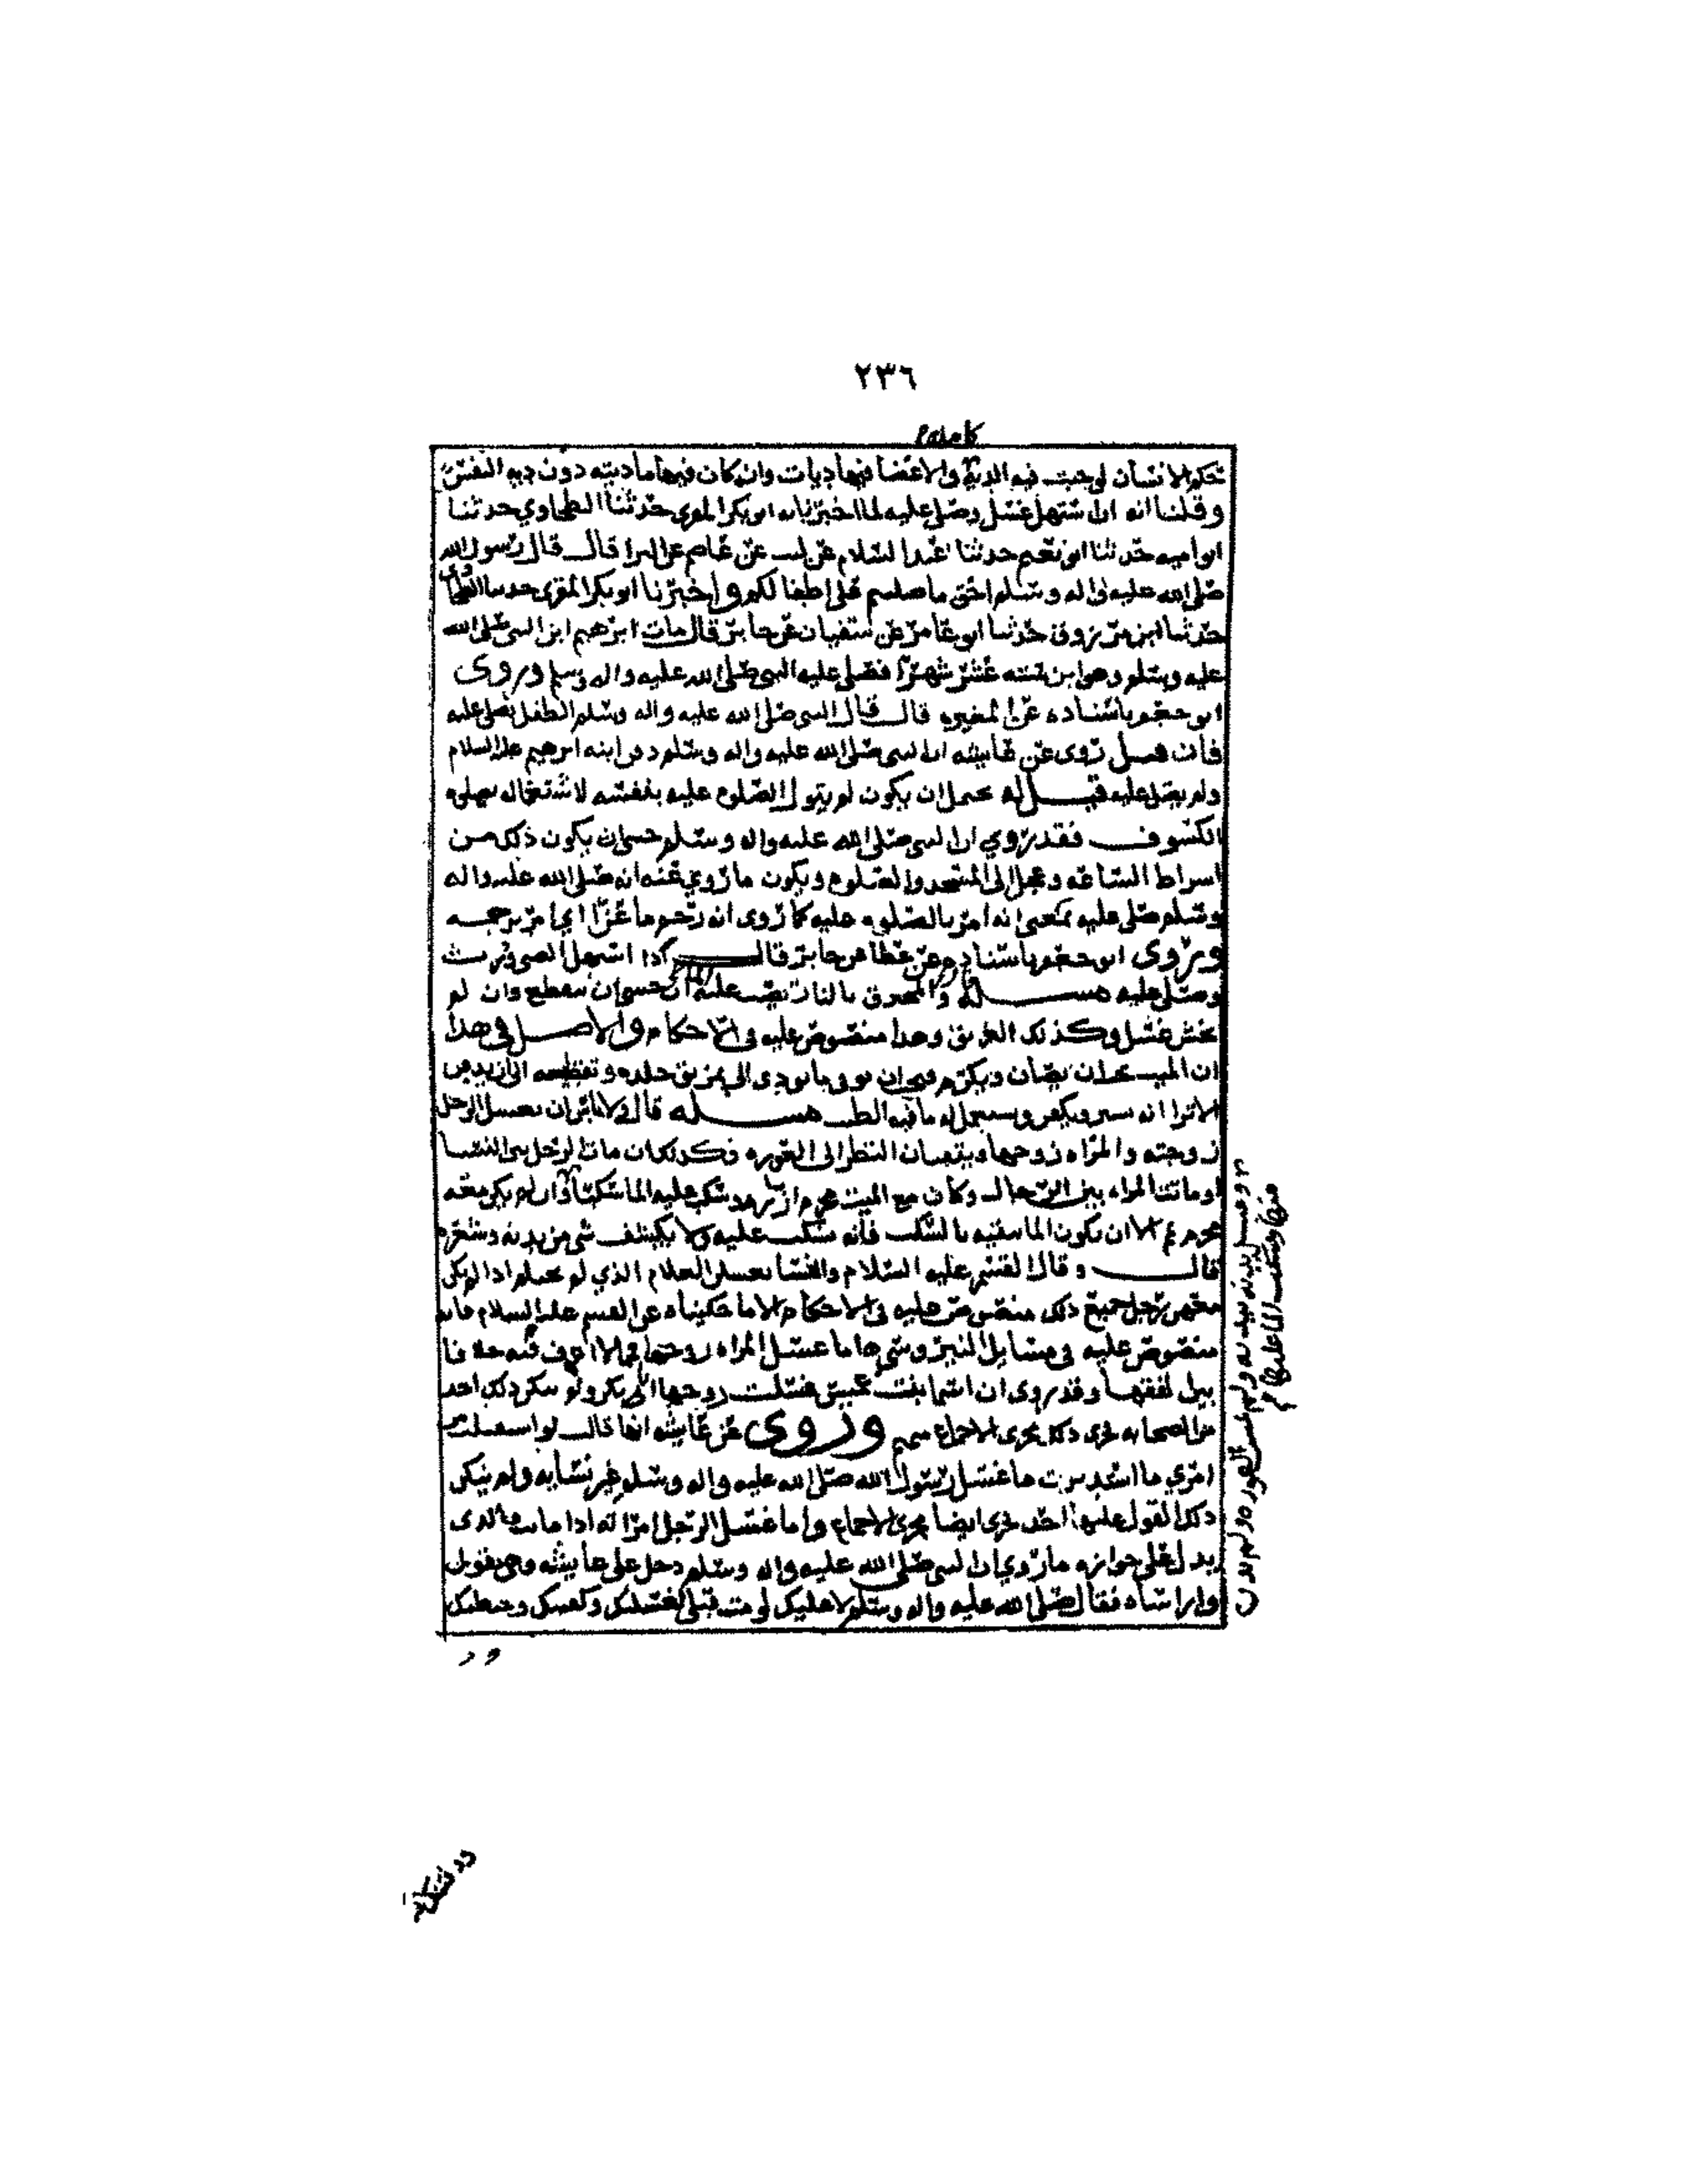 ٢٣٦
كاملة
حكم الانسان لوجبت فيه الدية والاعضا فيها ديات وان كان فيها ما ديته دون دية النفس
وقلنا انه ان استهل غسل وصلي عليه لما اخبرنا به ابو بكر المقري حدثنا الطحاوي حدثنا
ابو اميه حدثنا ابو نعيم حدثنا عبد السلام عن ليث عن عاصم عن البرا قال قال رسول الله
صلى الله عليه واله وسلم احق ما صليتم على اطفالكم واخبرنا ابو بكر المقري حدثنا الطحاوي
حدثنا ابن مرزوق حدثنا ابو عامر عن سفيان عن جابر قال مات ابرهيم ابن النبي صلى الله
عليه وسلم وهو ابن ستة عشر شهرا فصلى عليه النبي صلى الله عليه واله وسلم وروى
ابو جعفر باسناده عن المغيره قال قال النبي صلى الله عليه واله وسلم الطفل يصلى عليه
فان قيل روى عن عايشه ان النبي صلى الله عليه واله وسلم دفن ابنه ابرهيم عليه السلام
ولم يصل عليه قيل له يحتمل ان يكون لم يتول الصلوة عليه بنفسه لاشتغاله بصلوة
الكسوف فقد روي ان النبي صلى الله عليه واله وسلم خشي ان يكون ذلك من
اشراط الساعه وعجل الى المسجد والصلوة ويكون ما روي عنه انه صلى الله عليه واله
وسلم صلى عليه بمعنى انه امر بالصلوة عليه كما روى انه رجم ماعزا اي امر برجمه
وروى ابو جعفر باسناده عن عطا عن جابر قال اذا استهل الصبي ورث
وصلي عليه مسئلة والمحترق بالنار يصب عليه الماء ان خشي ان يتقطع وان لم
يخش غسل وكذلك الغريق وهذا منصوص عليه في الاحكام والاصل في هذا
ان الميت يجب ان يصان ويكرم فيجب ان يوقى ما يودي الى تمزيق جلده وتقطيعه
الا ترا انه يستر ويكفن ويستعمل له ما فيه الطيب مسئلة قال ولا باس ان يغسل الرجل
زوجته والمراه زوجها ويتقيان النظر الى العوره فكذلك ان مات الرجل بين النسا
او ماتت المراه بين الرجال وكان مع الميت محرم ازره وسكب عليه الما سكبا وان لم يكن معه
محرم يمم الا ان يكون الما ينقيه بالسكب فانه يسكب عليه ولا يكشف شي من بدنه وشعره
قال وقال القسم عليه السلام والنسا يغسلن الغلام الذي لم يحتلم اذا لم يكن
معهن رجل جميع ذلك منصوص عليه في الاحكام الا ما حكيناه عن القسم عليه السلام فانه
منصوص عليه في مسايل النيروسي واما غسل المراه زوجها فمما لا اعرف فيه خلافا
بين الفقها وقد روي ان اسما بنت عميس غسلت زوجها ابي بكر ولم ينكر ذلك احد
من الصحابه فجرى ذلك مجرى الاجماع منهم وروى عن عايشه انها قالت لو استقبلت من
امري ما استدبرت ما غسل رسول الله صلى الله عليه واله وسلم غير نسايه ولم ينكر
ذلك القول عليها احد فجرى ايضا مجرى الاجماع واما غسل الرجل امراته اذا ماتت فالذي
يدل على جوازه ما روي ان النبي صلى الله عليه واله وسلم دخل على عايشه وهي تقول
واراساه فقال صلى الله عليه واله وسلم لا عليك لو مت قبلي لغسلتك وكفنتك وحنطتك